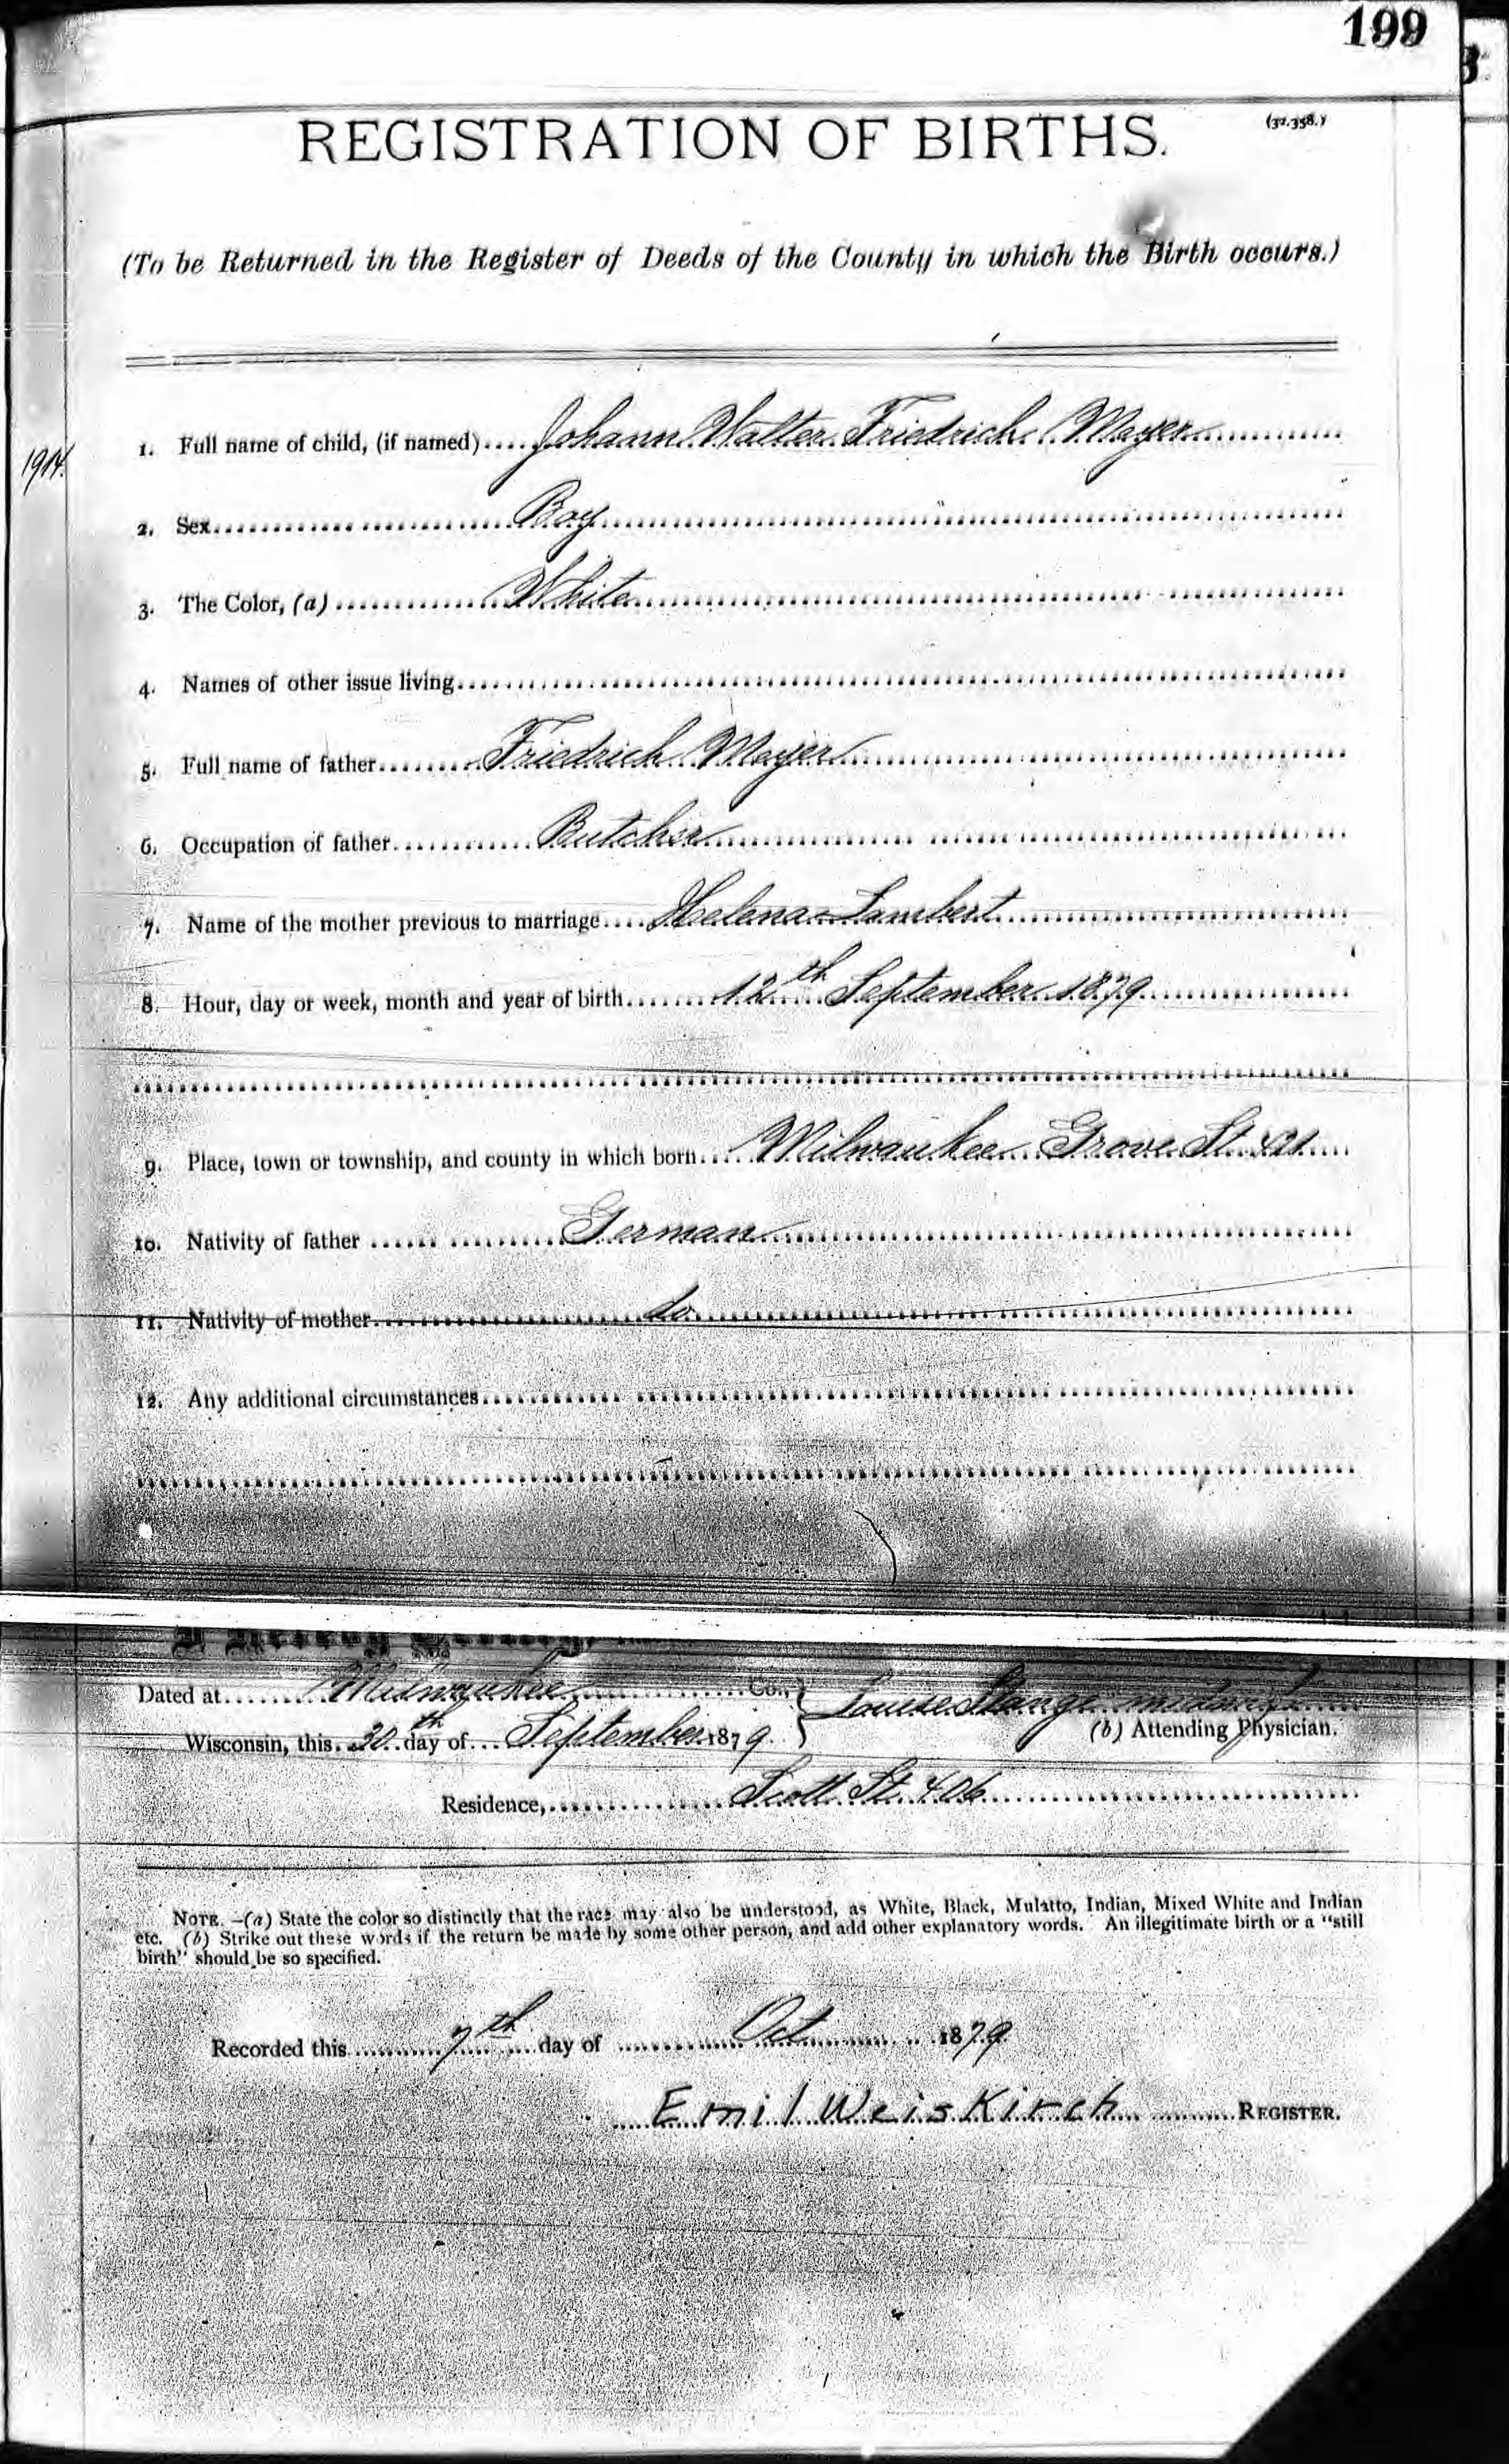 199
REGISTRATION OF BIRTHS.
(32.358.)
(To be Returned in the Register of Deeds of the County in which the Birth occurs.)
1914.
1. Full name of child, (if named) Johann Walter Friedrich Meyer
2. Sex Boy
3. The Color, (a) White
4. Names of other issue living
5. Full name of father Friedrich Meyer
6. Occupation of father Butcher
7. Name of the mother previous to marriage Helena Lambert
8. Hour, day or week, month and year of birth 12th September 1879
9. Place, town or township, and county in which born Milwaukee Grove St.
10. Nativity of father German
11. Nativity of mother do
12. Any additional circumstances
I Hereby Certify,
Dated at Milwaukee Co., Louise Stange midwife
Wisconsin, this 30th day of September 1879. (b) Attending Physician.
Residence, Scott St. 406
NOTE.—(a) State the color so distinctly that the race may also be understood, as White, Black, Mulatto, Indian, Mixed White and Indian
etc. (b) Strike out these words if the return be made by some other person, and add other explanatory words. An illegitimate birth or a "still
birth" should be so specified.
Recorded this 7th day of Oct 1879
Emil Weiskirch REGISTER.